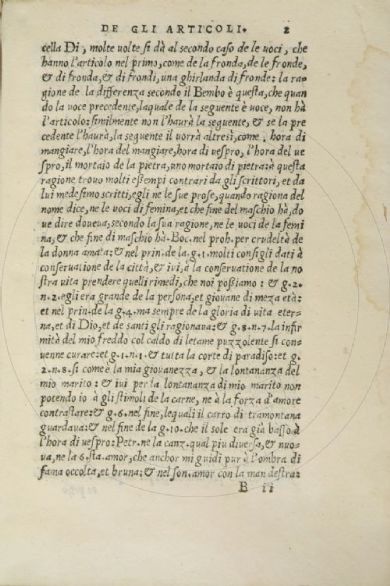 DE GLI ARTICOLI. 2
cella Di, molte volte si dà al secondo caso de le voci, che
hanno l'articolo nel primo, come de la fronda, de le fronde,
& di fronda, & di frondi, una ghirlanda di fronde: la ra-
gione de la differenza secondo il Bembo è questa, che quan
do la voce precedente, laquale de la seguente è voce, non hà
l'articolo: similmente non l'haurà la seguente, & se la pre
cedente l'haurà, la seguente il vorrà altresì, come, hora di
mangiare, l'hora del mangiare, hora di vespro, l'hora del ve
spro, il mortaio de la pietra, uno mortaio di pietra: à questa
ragione trovo molti essempi contrari da gli scrittori, et da
lui medesimo scritti, egli ne le sue prose, quando ragiona del
nome dice, ne le voci di femina, et che fine del maschio hà, do
ue dire doueua, secondo la sua ragione, ne le voci de la femi
na, & che fine di maschio hà. Boc. nel proh. per crudeltà de
la donna amata: & nel prin. de la g. 1. molti consigli dati à
conseruatione de la città, & ivi, à la conseruatione de la no
stra vita prendere quelli rimedi, che noi possiamo: & g. 2.
n. 2. egli era grande de la persona, et giouane di meza età:
et nel prin. de la g. 4. ma sempre de la gloria di vita eter-
na, et di Dio, et de santi gli ragionaua: & g. 8. n. 7. la infir
mità del mio freddo col caldo di letame puzzolente si con-
uenne curare: et g. 1. n. 1. & tutta la corte di paradiso: et g.
2. n. 8. si come è la mia giovenezza, & la lontananza del
mio marito: & ivi per la lontananza di mio marito non
potendo io à gli stimoli de la carne, ne à la forza d'amore
contrastare: & g. 6. nel fine, lequali il carro di tramontana
guardaua: & nel fine de la g. 10. che il sole era già basso à
l'hora di vespro: Petr. ne la canz. qual piu diuersa, & nuo-
ua, ne la 6. sta. amor, che anchor mi guidi pur à l'ombra di
fama occolta, et bruna: & nel son. amor con la man destra:
B ii